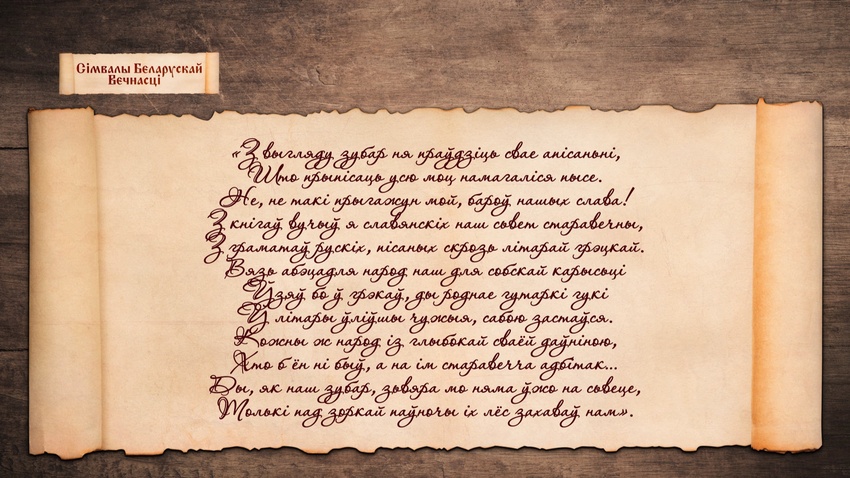 Сімвалы Беларускай
Вечнасці
«З выгляду зубар ня праўдзіць свае апісаньні,
Што прыпісаць усю моц намагаліся пысе.
Не, не такі прыгажун мой, бароў нашых слава!
З кнігаў вучыў я славянскіх наш сьвет старавечны,
З граматаў рускіх, пісаных скрозь літарай грэцкай.
Вязь абэцадла народ наш для собскай карысьці
Ўзяў бо ў грэкаў, ды роднае гутаркі гукі
Ў літары ўліўшы чужыя, сабою застаўся.
Кожны ж народ із глыбокай сваёй даўніною,
Хто б ён ні быў, а на ім старавечча адбітак...
Ды, як наш зубар, зьвяра мо няма ўжо на сьвеце,
Толькі над зоркай паўночы іх лёс захаваў нам».